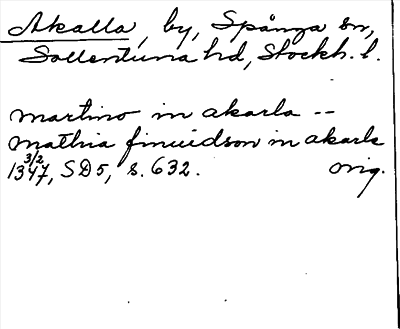 Akalla, by, Spånga sn,
Sollentuna hd, Stockh. l.
martino in akarla --
mathia finuidson in akarla
3/2
1347, SD5, s. 632. orig.